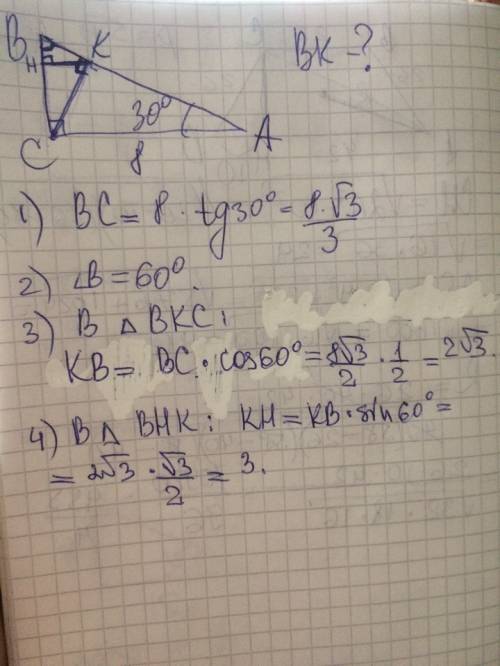 B
K
BK - ?
H
30°
C
A
8
1) BC = 8 · tg30° = 8·√3/3
2) ∠B = 60°.
3) В △ BKC:
KB = BC · cos60° = 8√3/2 · 1/2 = 2√3.
4) В △ BHK: KH = KB · sin60° =
= 2√3 · √3/2 = 3.